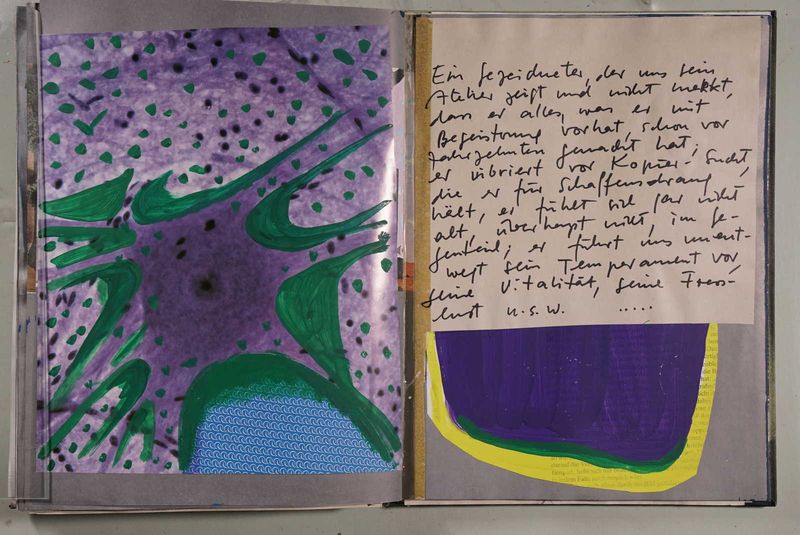 Ein Gezeichneter, der uns sein
Atelier zeigt und nicht merkt,
dass er alles, was er mit
Begeistrung vorhat, schon vor
Jahrzehnten gemacht hat;
er vibriert vor Kopier-Sucht,
die er für Schaffensdrang
hält, er fühlt sich gar nicht
alt, überhaupt nicht, im Ge-
genteil; er führt uns unent-
wegt sein Temperament vor,
seine Vitalität, seine Fress-
lust u.s.w. .....